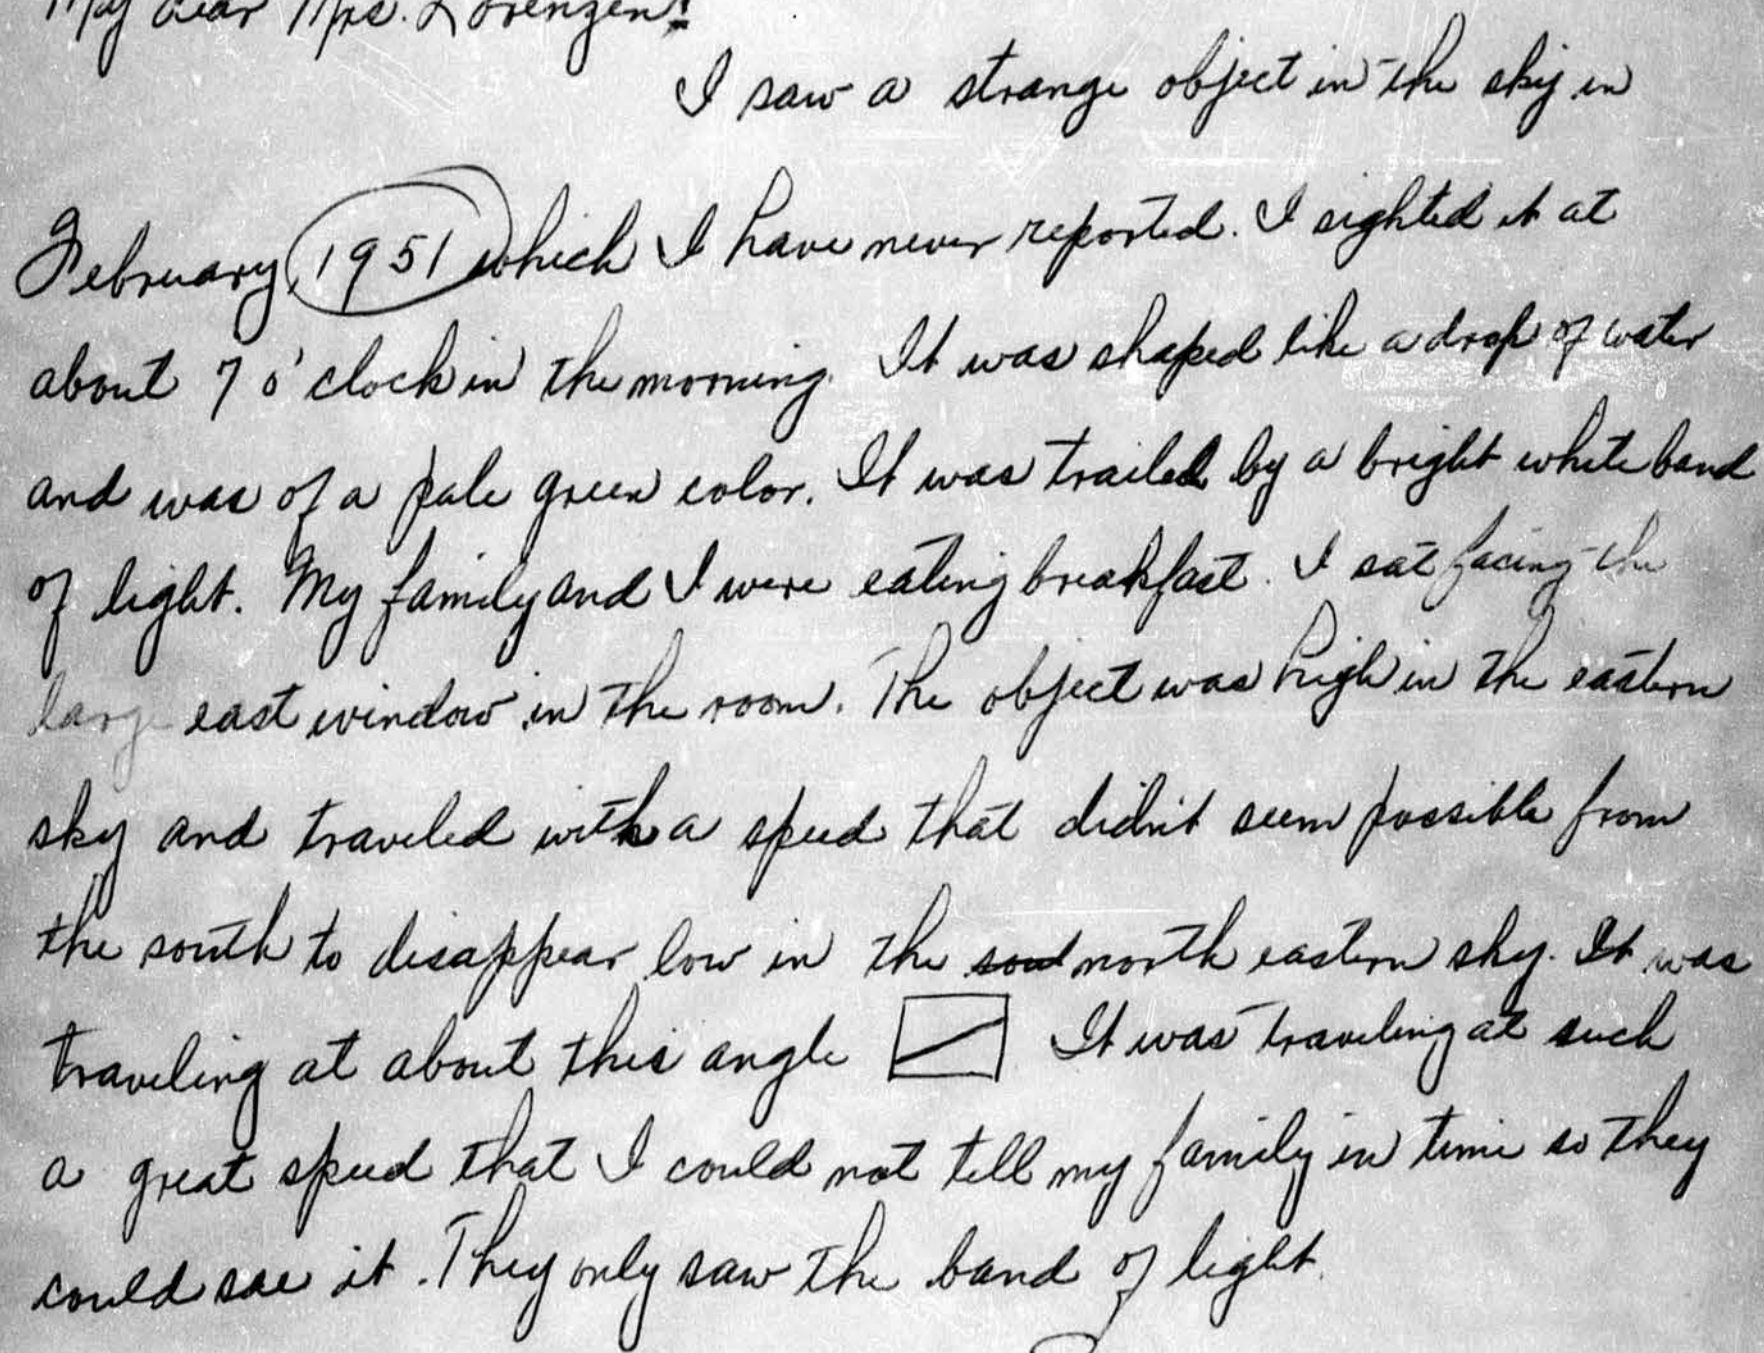 My dear Mrs. Lorenzen:
I saw a strange object in the sky in
February, 1951 which I have never reported. I sighted it at
about 7 o'clock in the morning. It was shaped like a drop of water
and was of a pale green color. It was trailed by a bright white band
of light. My family and I were eating breakfast. I sat facing the
large east window in the room. The object was high in the eastern
sky and traveled with a speed that didn't seem possible from
the south to disappear low in the sout north eastern sky. It was
traveling at about this angle It was traveling at such
a great speed that I could not tell my family in time so they
could see it. They only saw the band of light.